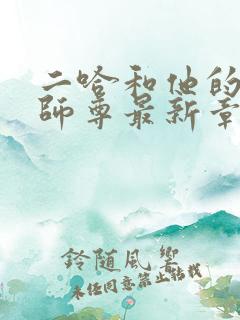 二哈和他的
師尊最新章
鈴随風響
未经同意禁止转载